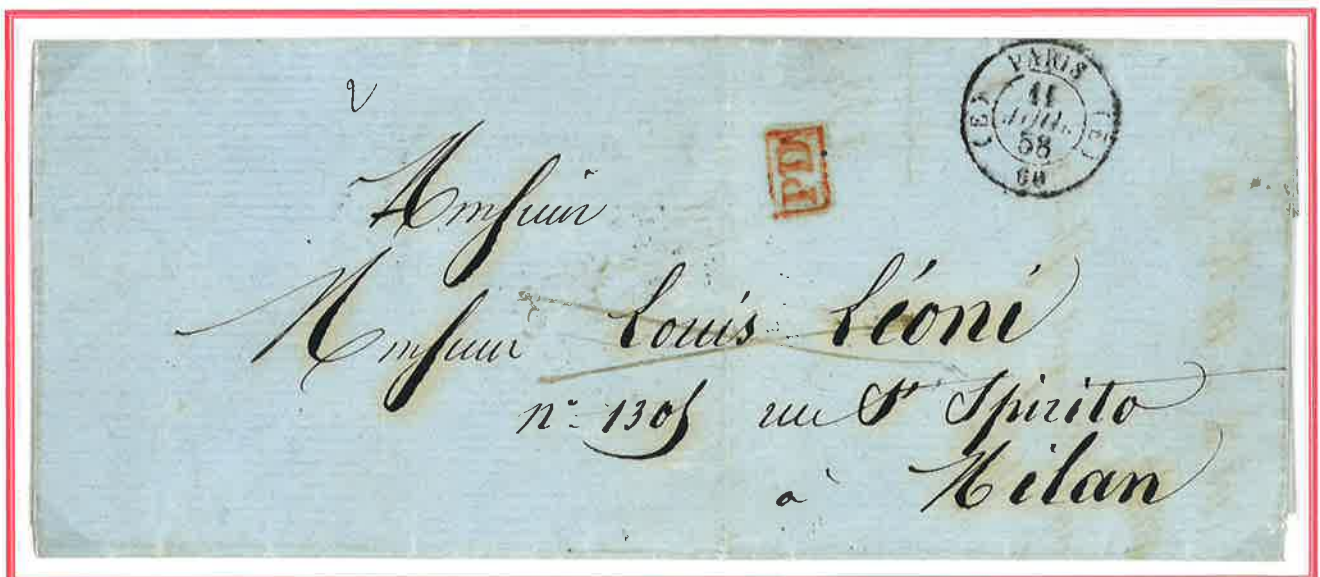 PARIS
(E) (E)
11
JUIL.
58
60
PD
Monsieur
Monsieur Louis Léoni
n° 1305 rue St Spirito
à Milan